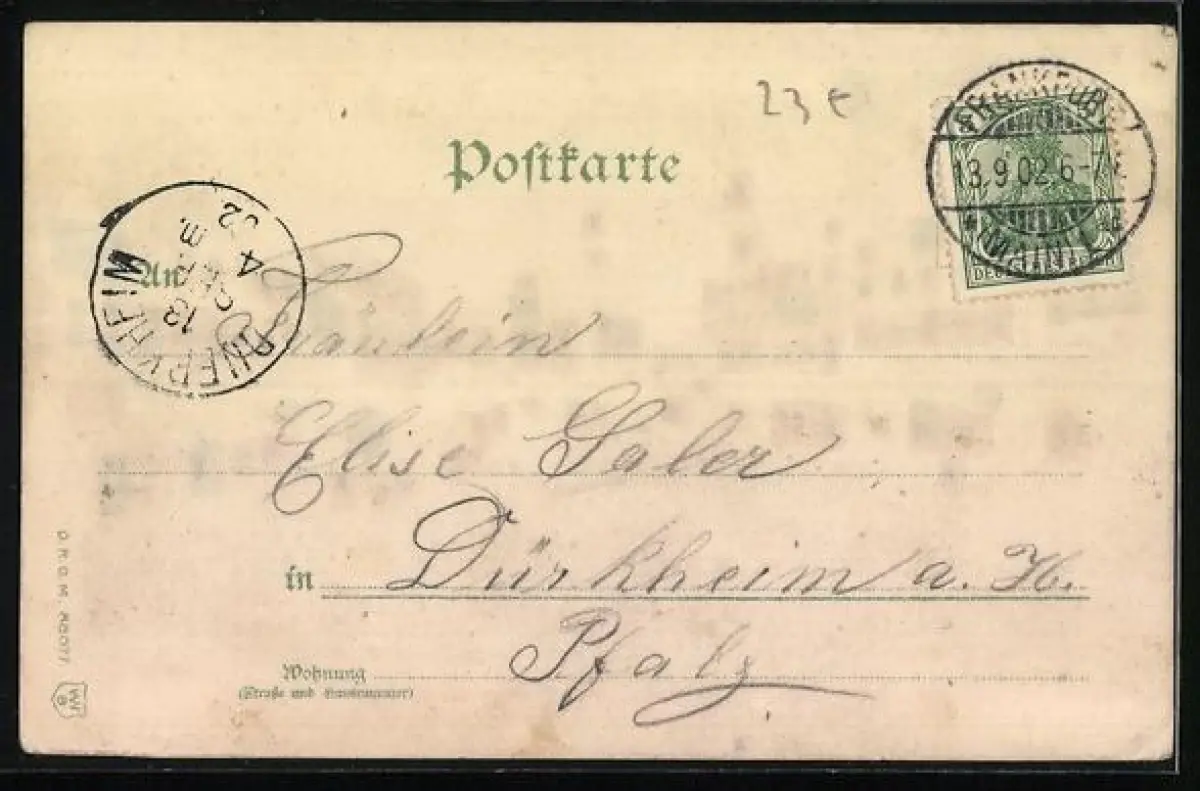 23 €
Postkarte
FRANKFURT
13.9.02.6-7N
* (MAIN) 1 *
DEUTSCHES REICH
DUERKHEIM
13
4
02
An
Fräulein
Elise Saler
in Dürkheim a. H.
Pfalz
Wohnung
(Straße und Hausnummer)
D.R.G.M.